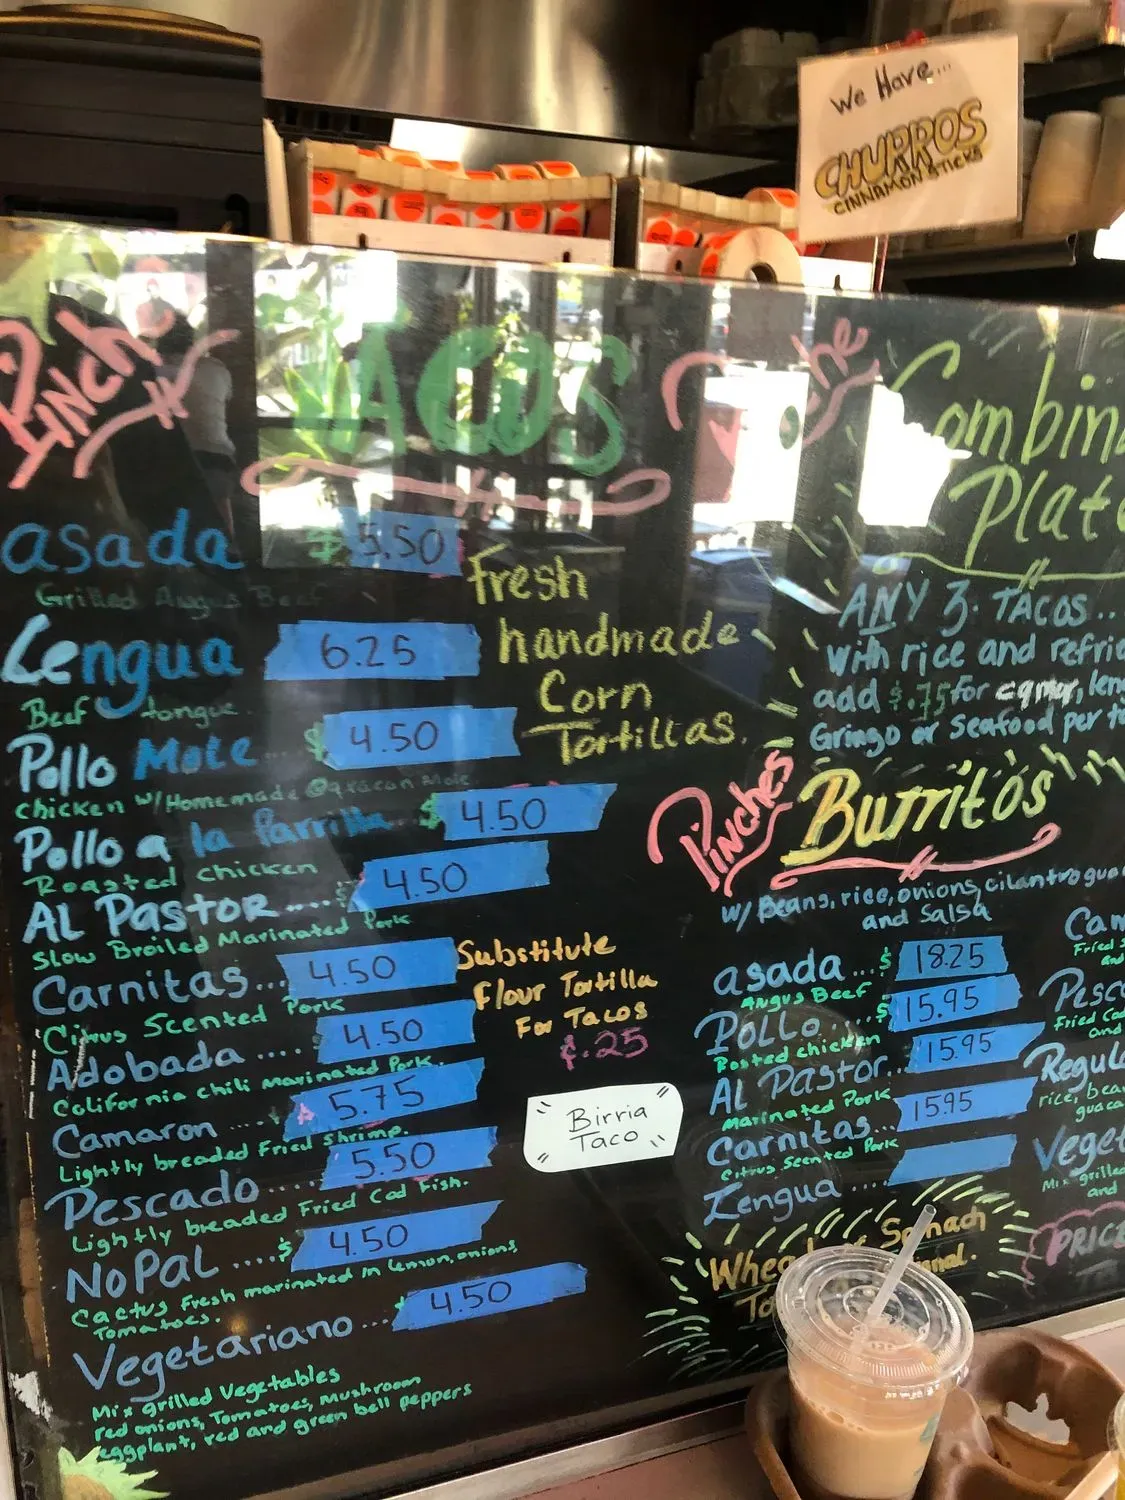 We Have...
CHURROS
CINNAMON STICKS
Pinche
TACOS
asada $ 5.50
Grilled Angus Beef
Lengua 6.25
Beef tongue
Pollo Mole... $ 4.50
Chicken w/Homemade Oaxacan Mole
Pollo a la Parrilla $ 4.50
Roasted Chicken
AL PASTOR....$ 4.50
Slow Broiled Marinated Pork
Carnitas... 4.50
Citrus Scented Pork
Adobada .... 4.50
California chili Marinated Pork.
Camaron .... 5.75
Lightly breaded Fried Shrimp.
Pescado..... 5.50
Lightly breaded Fried Cod Fish.
NOPAL .....$ 4.50
Cactus Fresh marinated in Lemon, onions,
Tomatoes.
Vegetariano ... 4.50
Mix grilled Vegetables
red onions, Tomatoes, Mushroom
eggplant, red and green bell peppers
Fresh
handmade
Corn
Tortillas.
Substitute
Flour Tortilla
For Tacos
¢.25
"Birria
Taco"
Combin
Plat
ANY 3. TACOS..
With rice and refri
add $.75 for
Gringo or Seafood per
Pinches
Burritos
w/ Beans, rice, onions, cilantro gua
and Salsa
asada...$ 18.25
Angus Beef
POLLO.....$ 15.95
Rosted chicken
AL Pastor.. 15.95
Marinated Pork
Carnitas... 15.95
Citrus Scented Pork
Lengua ....
Cam
Fried S
Pesc
Fried Cod
and
Regul
rice, bea
guaca
Veget
Mix grilled
and
Spinach
PRIC